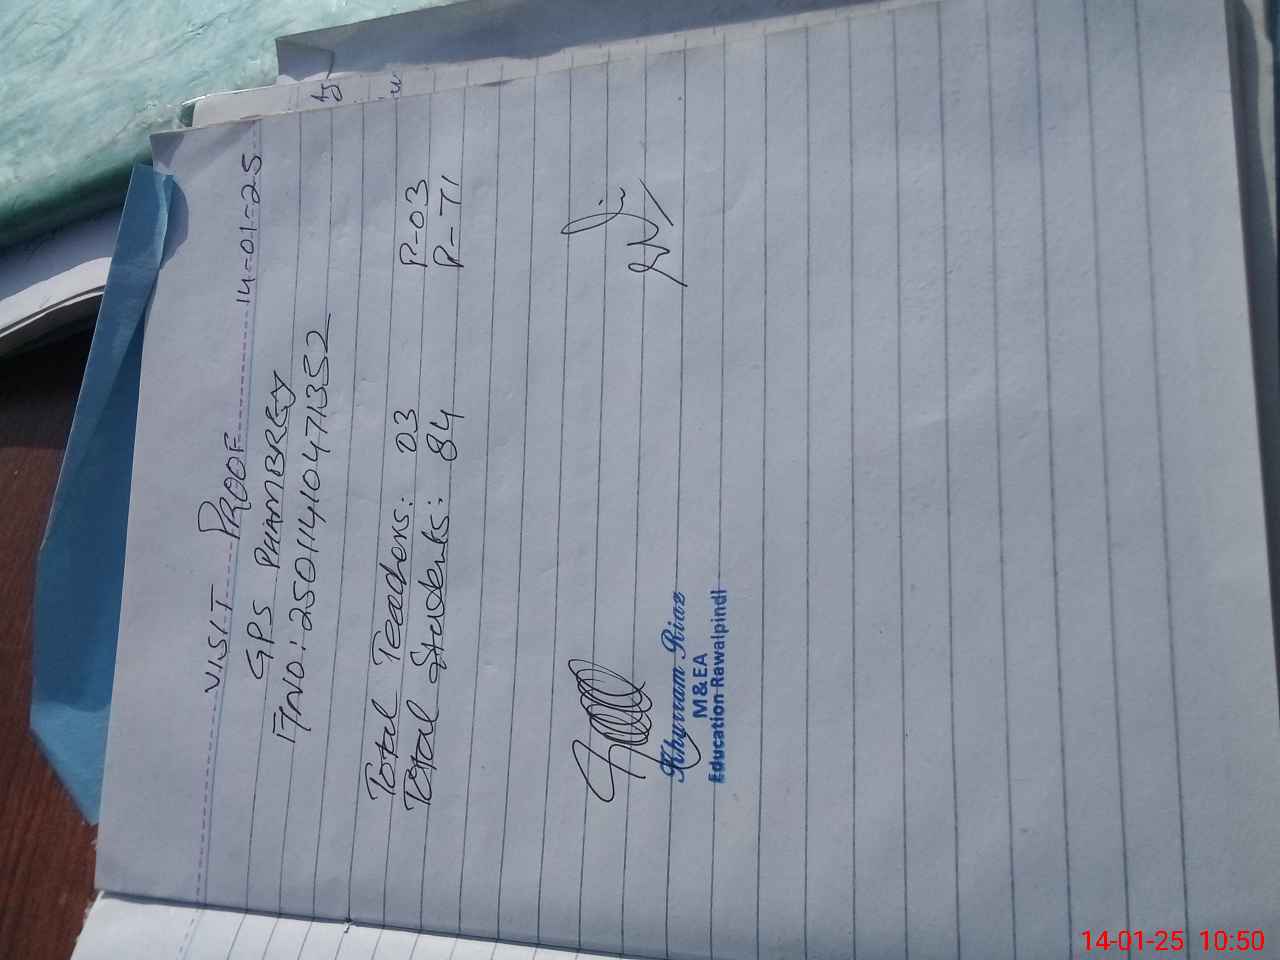 VISIT PROOF 14-01-25
GPS PHAMBREY
ITNO: 25011410471352
Total Teachers: 03 P-03
Total Students: 84 P-71
Khurram Riaz
M & EA
Education Rawalpindi
14-01-25 10:50